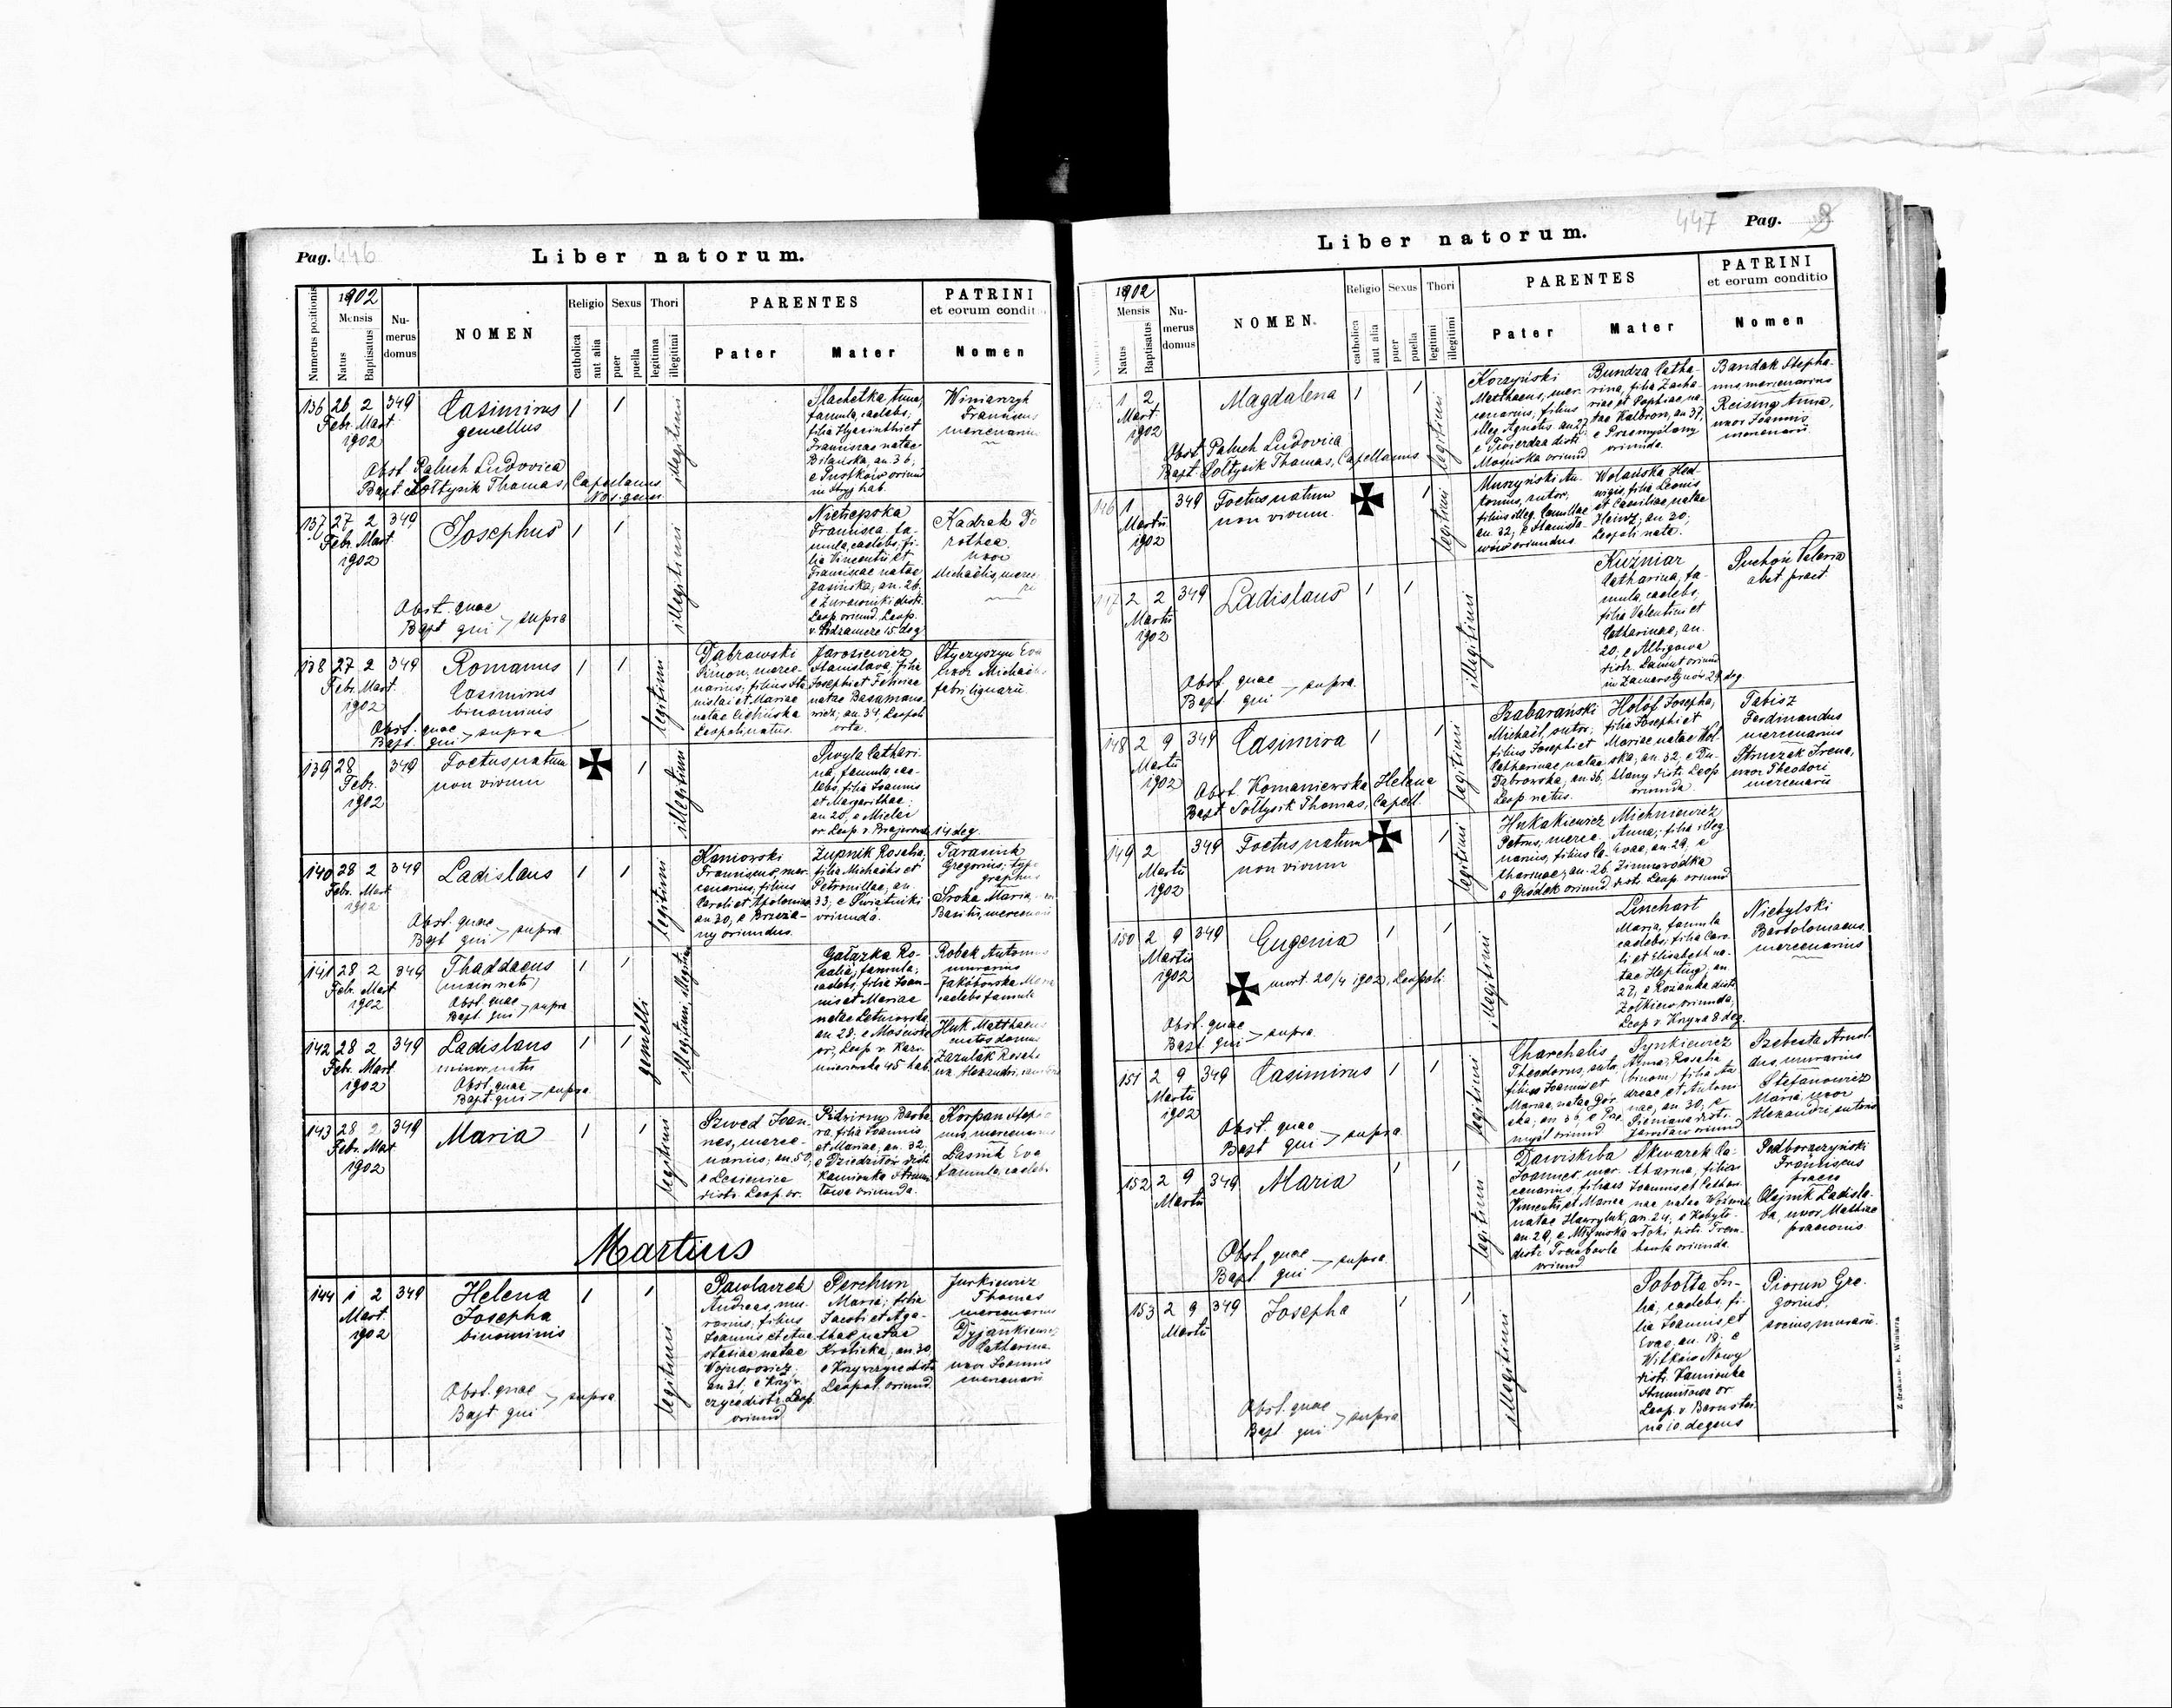 Pag. 446
Liber natorum.
Numerus positionis
1902
Mensis
Natus
Baptisatus
Numerus domus
NOMEN
Religio
catholica
aut alia
Sexus
puer
puella
Thori
legitima
illegitimi
PARENTES
Pater
Mater
PATRINI
et eorum conditio
Nomen
136 26 2 349 Casimirus
Febr. Mart. gemellus
1902
Obst. Paluch Ludovica
Bapt. Sołtysik Thomas, Capellanus
illegitimi
Slachetka Anna,
famula, caelebs;
filia Hyacinthi et
Franciscae natae
an. 36;
in Stryj hab.
Winiarczyk
Franciscus
mercenarius
137 27 2 349 Josephus
Febr. Mart.
1902
Obst. quae
Bapt. qui > supra
illegitimi
Francisca, fa-
mula, caelebs, fi-
lia Vincentii et
Franciscae natae
Jasińska, an. 26,
e Żurawniki distr.
Leop. oriund. Leop.
v. Podzamcze 15 deg.
Kadrak Do
rothea
uxor
Michaëlis, merce-
138 27 2 349 Romanus
Febr. Mart. Casimirus
1902 binominis
Obst. quae
Bapt. qui > supra
legitimi
Dąbrowski
Simon, merce-
narius, filius Sta
nislai et Mariae
natae Cichińska
Leopoli natus.
Jarosiewicz
Stanislava, filia
Josephi et Feliciae
natae
wicz; an. 34, Leopoli
orta.
Styczyszyn Eva
uxor Michaëlis
fabri lignarii.
139 28 349 Foetus natum
Febr. non vivum
1902
illegitimi
Cathari-
na, famula, cae-
lebs, filia Joannis
et Margarithae;
an 20, e Mielec
or. Leop. v. 14 deg.
140 28 2 349 Ladislaus
Febr. Mart.
1902
Obst. quae
Bapt. qui > supra
legitimi
Kaniowski
Franciscus, mer-
cenarius, filius
Caroli et Apoloniae
an 30, e Brzeża-
ny oriundus.
Żupnik Rosalia,
filia Michaëlis et
Petronillae; an.
33; e Świątniki
oriunda.
Tarasiuk
Gregorius; typo
graphus
Sroka Maria,
Basilii, mercenarii
141 28 2 349 Thaddaeus
Febr. Mart. (maior natu)
1902
Obst. quae
Bapt. qui > supra
gemelli
illegitimi, illegitimi
Gałązka Ro-
salia, famula,
caelebs, filia Joan-
nis et Mariae
natae Letnowska
an 28; e Mościska
or., Leop. v. Kazi-
mierowska 45 hab.
Robak Antonius
murarius
Jakóbowska Maria
caelebs famula
142 28 2 349 Ladislaus
Febr. Mart. minor natu
1902
Obst. quae
Bapt. qui > supra
Huk Matthaeus
custos domus
Zazulak Rosalia
ux. Alexandri
143 28 2 349 Maria
Febr. Mart.
1902
legitimi
Szwed Joan-
nes, merce-
narius; an. 50;
e Lesienice
distr. Leop. or.
Pidzirny Barba
ra, filia Joannis
et Mariae; an. 32.
e Dziedziłów distr.
Kamionka Strumi
łowa oriunda.
Korpan Step
nus, mercenarius
Lasnik Eva
famula, caelebs
Martius
144 1 2 349 Helena
Mart. Josepha
1902 binominis
Obst. quae
Bapt. qui > supra
legitimi
Pawlaczek
Andreas, mu-
rarius; filius
Joannis et Ana-
stasiae natae
Wojnarowicz,
an 31, e Krzyw-
czyce distr. Leop.
oriund.
Perchun
Maria; filia
Jacobi et Aga-
thae natae
Krolicka, an. 30,
e Krzywczyce distr.
Leopol. oriund.
Jurkiewicz
Thomas
mercenarius
Dyjankiewicz
Catharina
uxor Joannis
mercenarii
447 Pag.
Liber natorum.
1902
Mensis
Natus
Baptisatus
Numerus domus
NOMEN.
Religio
catholica
aut alia
Sexus
puer
puella
Thori
legitimi
illegitimi
PARENTES
Pater
Mater
PATRINI
et eorum conditio
Nomen
1 2 Magdalena
Mart.
1902
Obst. Paluch Ludovica
Bapt. Sołtysik Thomas, Capellanus
legitimi
Korzyński
Matthaeus, mer-
cenarius; filius
illeg. Agnetis an 27,
e Twierdza distr.
Mościska oriund.
Bundza Catha-
rina, filia Zacha-
riae et Sophiae na-
tae Kalbron, an 37,
e Przemyślany
oriunda.
Bandak Stepha-
nus, mercenarius
Reising Anna,
uxor Joannis
mercenarii.
146 1 349 Foetus natum
Martii non vivum.
1902
legitimi
Muszyński An-
tonius, sutor;
filius illeg. Camillae
an. 32, e Stanisła-
wów oriundus.
Wolańska Hed-
wigis, filia Leonis
et Camillae, natae
Heinz; an 30;
Leopoli nata.
147 2 2 349 Ladislaus
Martii
1902
Obst. quae
Bapt. qui > supra.
illegitimi
Kuźniar
Catharina, fa-
mula, caelebs,
filia Valentini et
Catharinae, an.
20, e Albigowa
distr. Łańcut oriund
in Zamarstynów 29 deg.
Suchoń Valeria
obst. praet.
148 2 9 349 Casimira
Martii
1902
Obst. Komaniewska Helena
Bapt. Sołtysik Thomas, Capell.
legitimi
Szabarański
Michaël, sutor;
filius Josephi et
Catharinae natae
Dąbrowska, an. 36,
Leop. natus.
Hołof Josepha,
filia Josephi et
Mariae natae Wol
ska; an. 32, e Du-
blany distr. Leop.
oriunda.
Tabisz
Ferdinandus
mercenarius
Struczak Irena,
uxor Theodori
mercenarii
149 2 349 Foetus natum
Martii non vivum
1902
legitimi
Hukakiewicz
Petrus, merce-
narius, filius Ca-
tharinae; an. 26,
e Gródek oriund.
Michniewicz
Anna; filia illeg.
Evae, an. 29, e
Zimnawódka
distr. Leop. oriund
150 2 9 349 Eugenia
Martii
1902
mort. 20/4 1902, Leopoli.
Obst. quae
Bapt. qui > supra.
illegitimi
Linehart
Maria, famula
caelebs, filia Caro-
li et Elisabeth na-
tae Hepting; an.
27, e Rożanka distr.
Żołkiew oriunda,
Leop. v. 8 deg.
Niebylski
Bartolomaeus
mercenarius
151 2 9 349 Casimirus
Martii
1902
Obst. quae
Bapt. qui > supra.
legitimi
Charchalis
Theodorus, sutor,
filius Joannis et
Mariae, natae Gór
ska; an. 36, e Prze
myśl oriund
Synkiewicz
Anna, Rosalia
(binom.) filia An
dreae et Antoni
nae, an 30; e
Pieniany distr.
Jarosław oriund
Szebesta Arnol-
dus, murarius
Stefanowicz
Maria, uxor
Alexandri, sutoris
152 2 9 349 Maria
Martii
Obst. quae
Bapt. qui > supra
legitimi
Dawiskiba
Joannes, mer-
cenarius, filius
Vincentii et Mariae
natae Hawryluk,
an. 29, e Młyniska
distr. Trembowla
oriund
Skwarek Ca-
tharina, filia
Joannis et Petron
nae natae Woźniak
an. 24; e Kobyło-
włoki distr. Trem-
bowla oriunda.
Podborączyński
Franciscus
praeco
Olejnik Ladisla-
va, uxor Mathiae
praeconis.
153 2 9 349 Josepha
Martii
Obst. quae
Bapt. qui > supra
illegitimi
Sobotta Ju-
lia, caelebs, fi-
lia Joannis et
Evae, an. 19; e
Witków Nowy
distr. Kamionka
Strumiłowa or.
Leop. v. Bernstei-
na 10 degens
Piorun Gre-
gorius,
socius murarii.
Z drukarni E. Winiarza